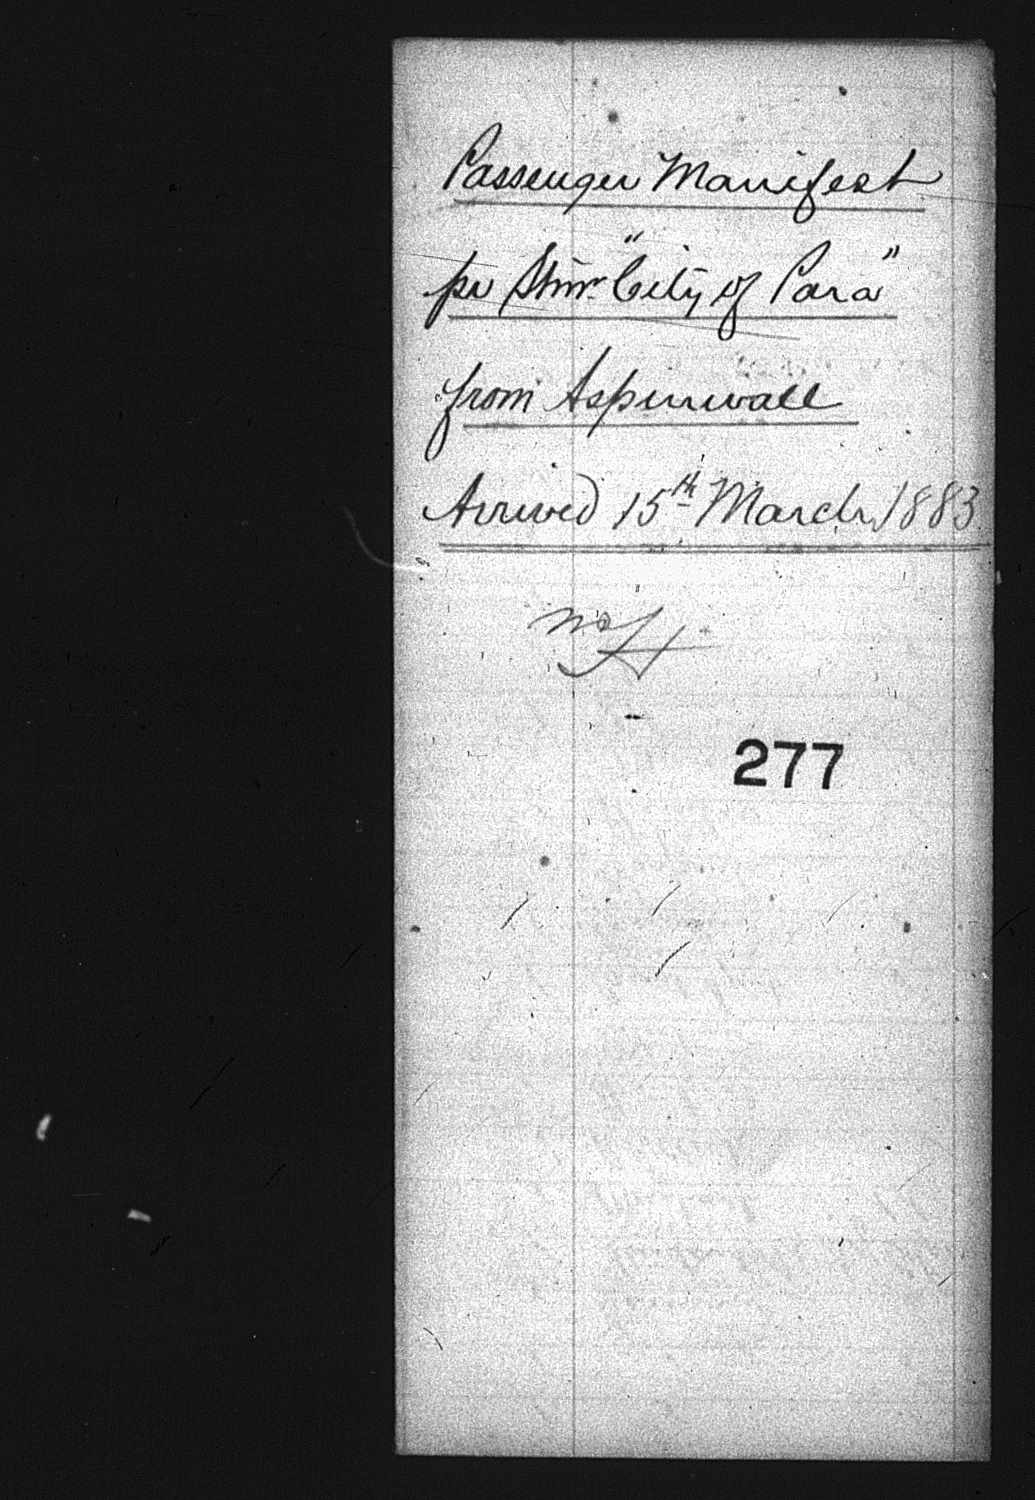 Passenger Manifest
pr Stmr. "City of Para"
from Aspinwall
Arrived 15th March 1883
277